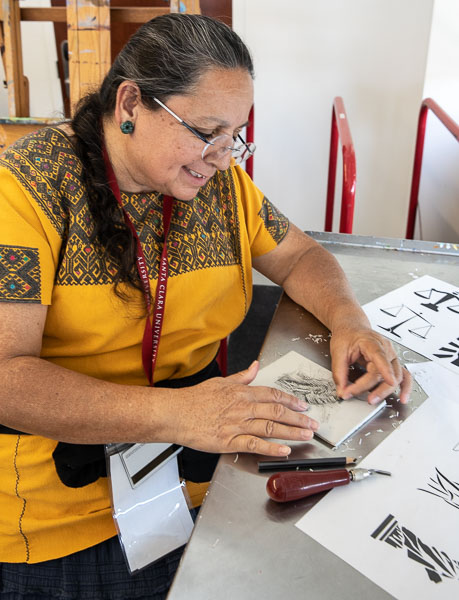 SANTA CLARA UNIVERSITY